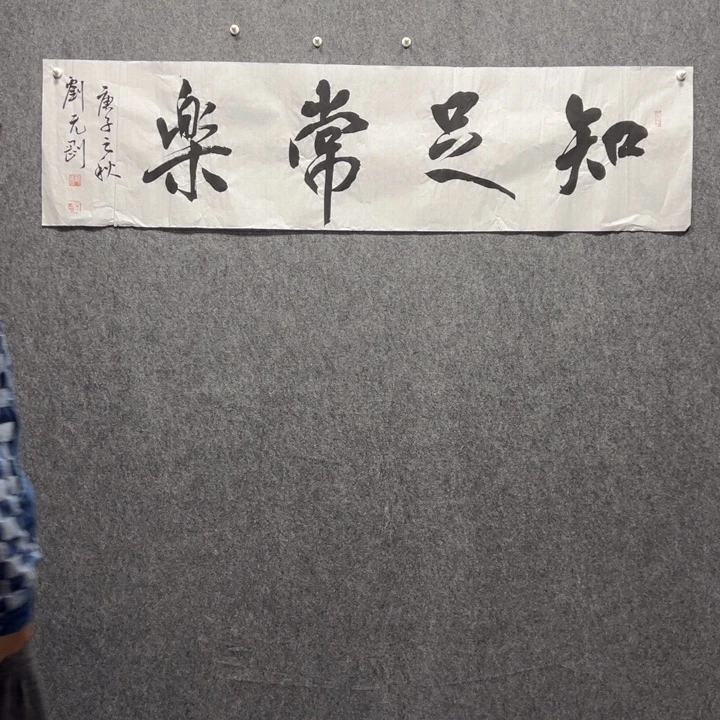 知足常樂
庚子之秋
劉元剛